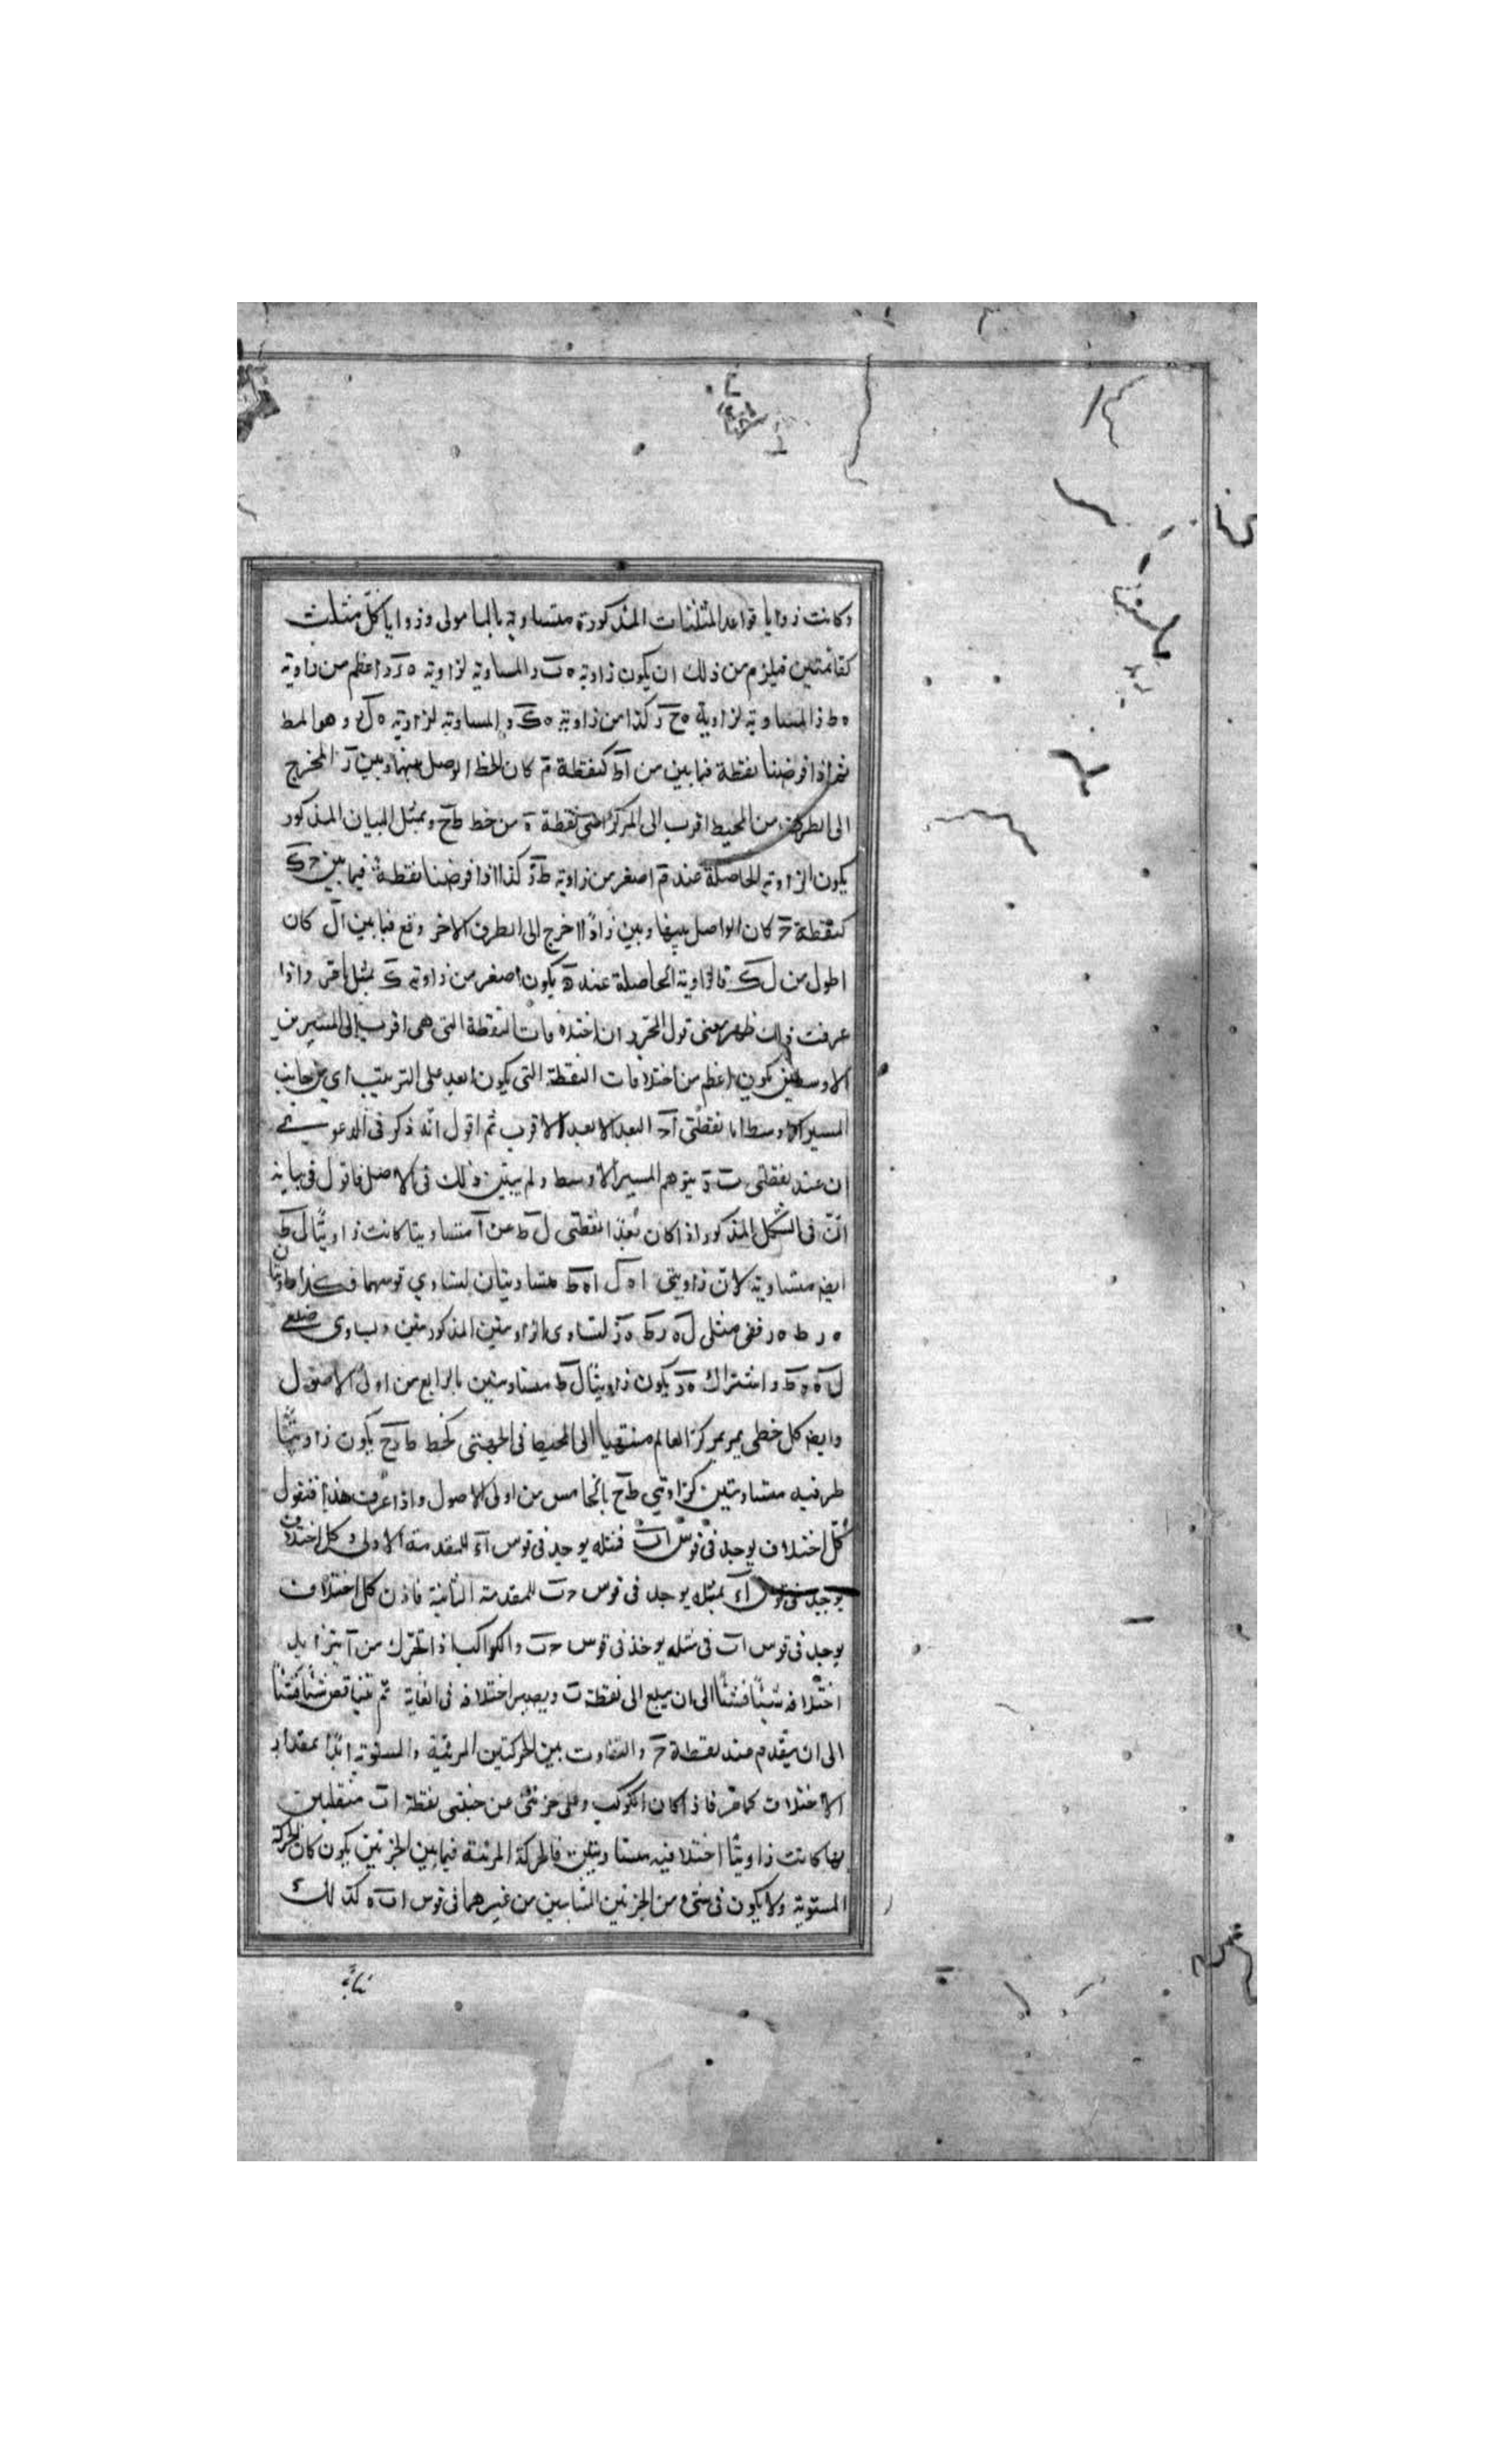 وكانت زوايا قواعد المثلثات المذكورة متساوية بالمامونى وزوايا كل مثلث
كقائمتين فيلزم من ذلك ان يكون زاوية ه ب د المساوية لزاوية ه د اعظم من زاوية
ه ط ز المساوية لزاوية ه ح ز كذا من زاوية ه ك و المساوية لزاوية ه ل و هو المط
ثم اذا فرضنا نقطة فيما بين من اط كنقطة م كان الخط الوصل بينها وبين ز المخرج
الى الطرفين من المحيط اقرب الى المركز اعنى نقطة ه من خط ط ح وبمثل البيان المذكور
يكون الزاوية الحاصلة عند م اصغر من زاوية ط و كذا اذا فرضنا نقطة فيما بين ح ك
كنقطة كان الواصل بينها وبين ز اذا اخرج الى الطرف الاخر وقع فيما بين ال كان
اطول من ل ك فالزاوية الحاصلة عند يكون اصغر من زاوية ك بمثل ما مر واذا
عرفت ذلك ظهر معنى قول المحرر ان اختلافات النقطة التى هى اقرب الى المسيرين
الاوسطين يكون اعظم من اختلافات النقطة التى يكون ابعد على الترتيب اى من جانب
المسير الاوسط اما نقطتى اح البعد الابعد الاقرب ثم اقول انه ذكر فى الدعوى
ان عند نقطتى ب يتوهم المسير الاوسط ولم يبين ذلك فى الاصل فاقول فى بيانه
ان فى الشكل المذكور اذا كان بعدا نقطتى ل ط عن ا متساويتا كانت زاويتا ل ط
ايض متساوية لان زاويتى ا ه ل ا ه ط متساويتان لتساوى قوسهما فكذا زاويتا
ه ر ط ه ر ففى مثلثى ل ه ر ط ه ز لتساوى الزاويتين المذكورتين وتساوى ضلعى
ل ه ه ط واشتراك ه ز يكون زاويتا ل ط متساويتين بالرابع من اولى الاصول
وايض كل خطى يمر بمركز العالم منتهيا الى المحيط فى الجهتى كخط ط ز ح يكون زاويتا
طرفيه متساويتين كزاوتى ط ح بالخامس من اولى الاصول واذا عرفت هذا فنقول
كل اختلاف يوجد فى قوس اب فمثله يوجد فى قوس اء للمقدمة الاولى وكل اختلاف
يوجد فى قوس اء بمثله يوجد فى قوس ح ب للمقدمة الثانية فاذن كل اختلاف
يوجد فى قوس اب فى مثله يوخذ فى قوس ح ب والكواكب اذا تحرك من ا يتزايد
اختلافه شيئًا فشيئًا الى ان يبلغ الى نقطة ب ويصير اختلافه فى الغاية ثم يتناقص شيئا فشيئا
الى ان يتقدم عند نقطة ح والتفاوت بين الحركتين المرئية والمستوية ابدًا بمقدار
الاختلاف كما مر فاذا كان الكوكب على جزئى من جنبتى نقطة اب منقلبين
بها كانت زاويتا اختلافيه متساويتين فالحركة المرئية فيما بين الجزئين يكون كان الحركة
المستوية ولا يكون فى شىء من الجزئين الثابتين من غيرهما فى قوس اب ه كذلك